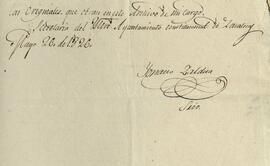 Originales que obran en este Archivo de mi cargo.
Secretaria del Ylltre Ayuntamiento constitucional de
Mayo 26. de 1826.
Ygnacio Zaldua
Srio.